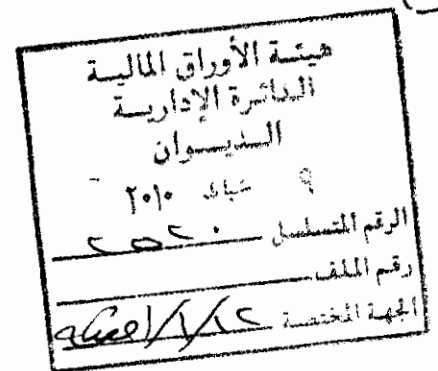 هيئة الأوراق المالية
الدائرة الإدارية
الديوان
٩ شباط ٢٠١٠
الرقم المتسلسل ٢٥٢٠
رقم الملف
الجهة المختصة